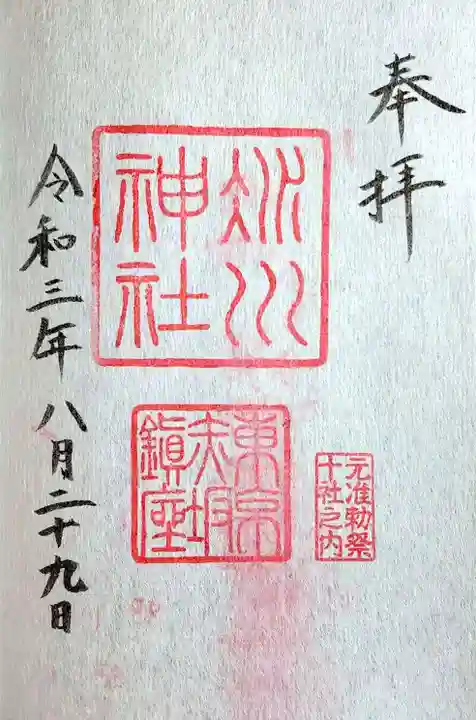 奉拝
氷川
神社
東京
赤坂
鎮座
元准勅祭
十社之内
令和三年八月二十九日